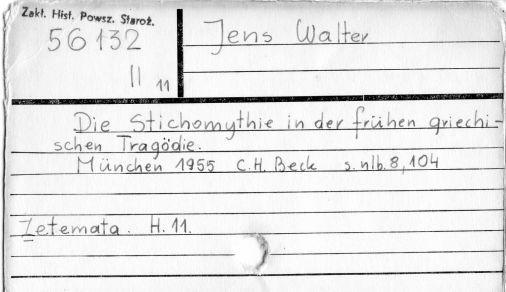 Zakł. Hist. Powsz. Staroż.
56132
II 11
Jens Walter
Die Stichomythie in der frühen griechi-
schen Tragödie.
München 1955 C.H. Beck s. nlb. 8, 104
Zetemata. H. 11.